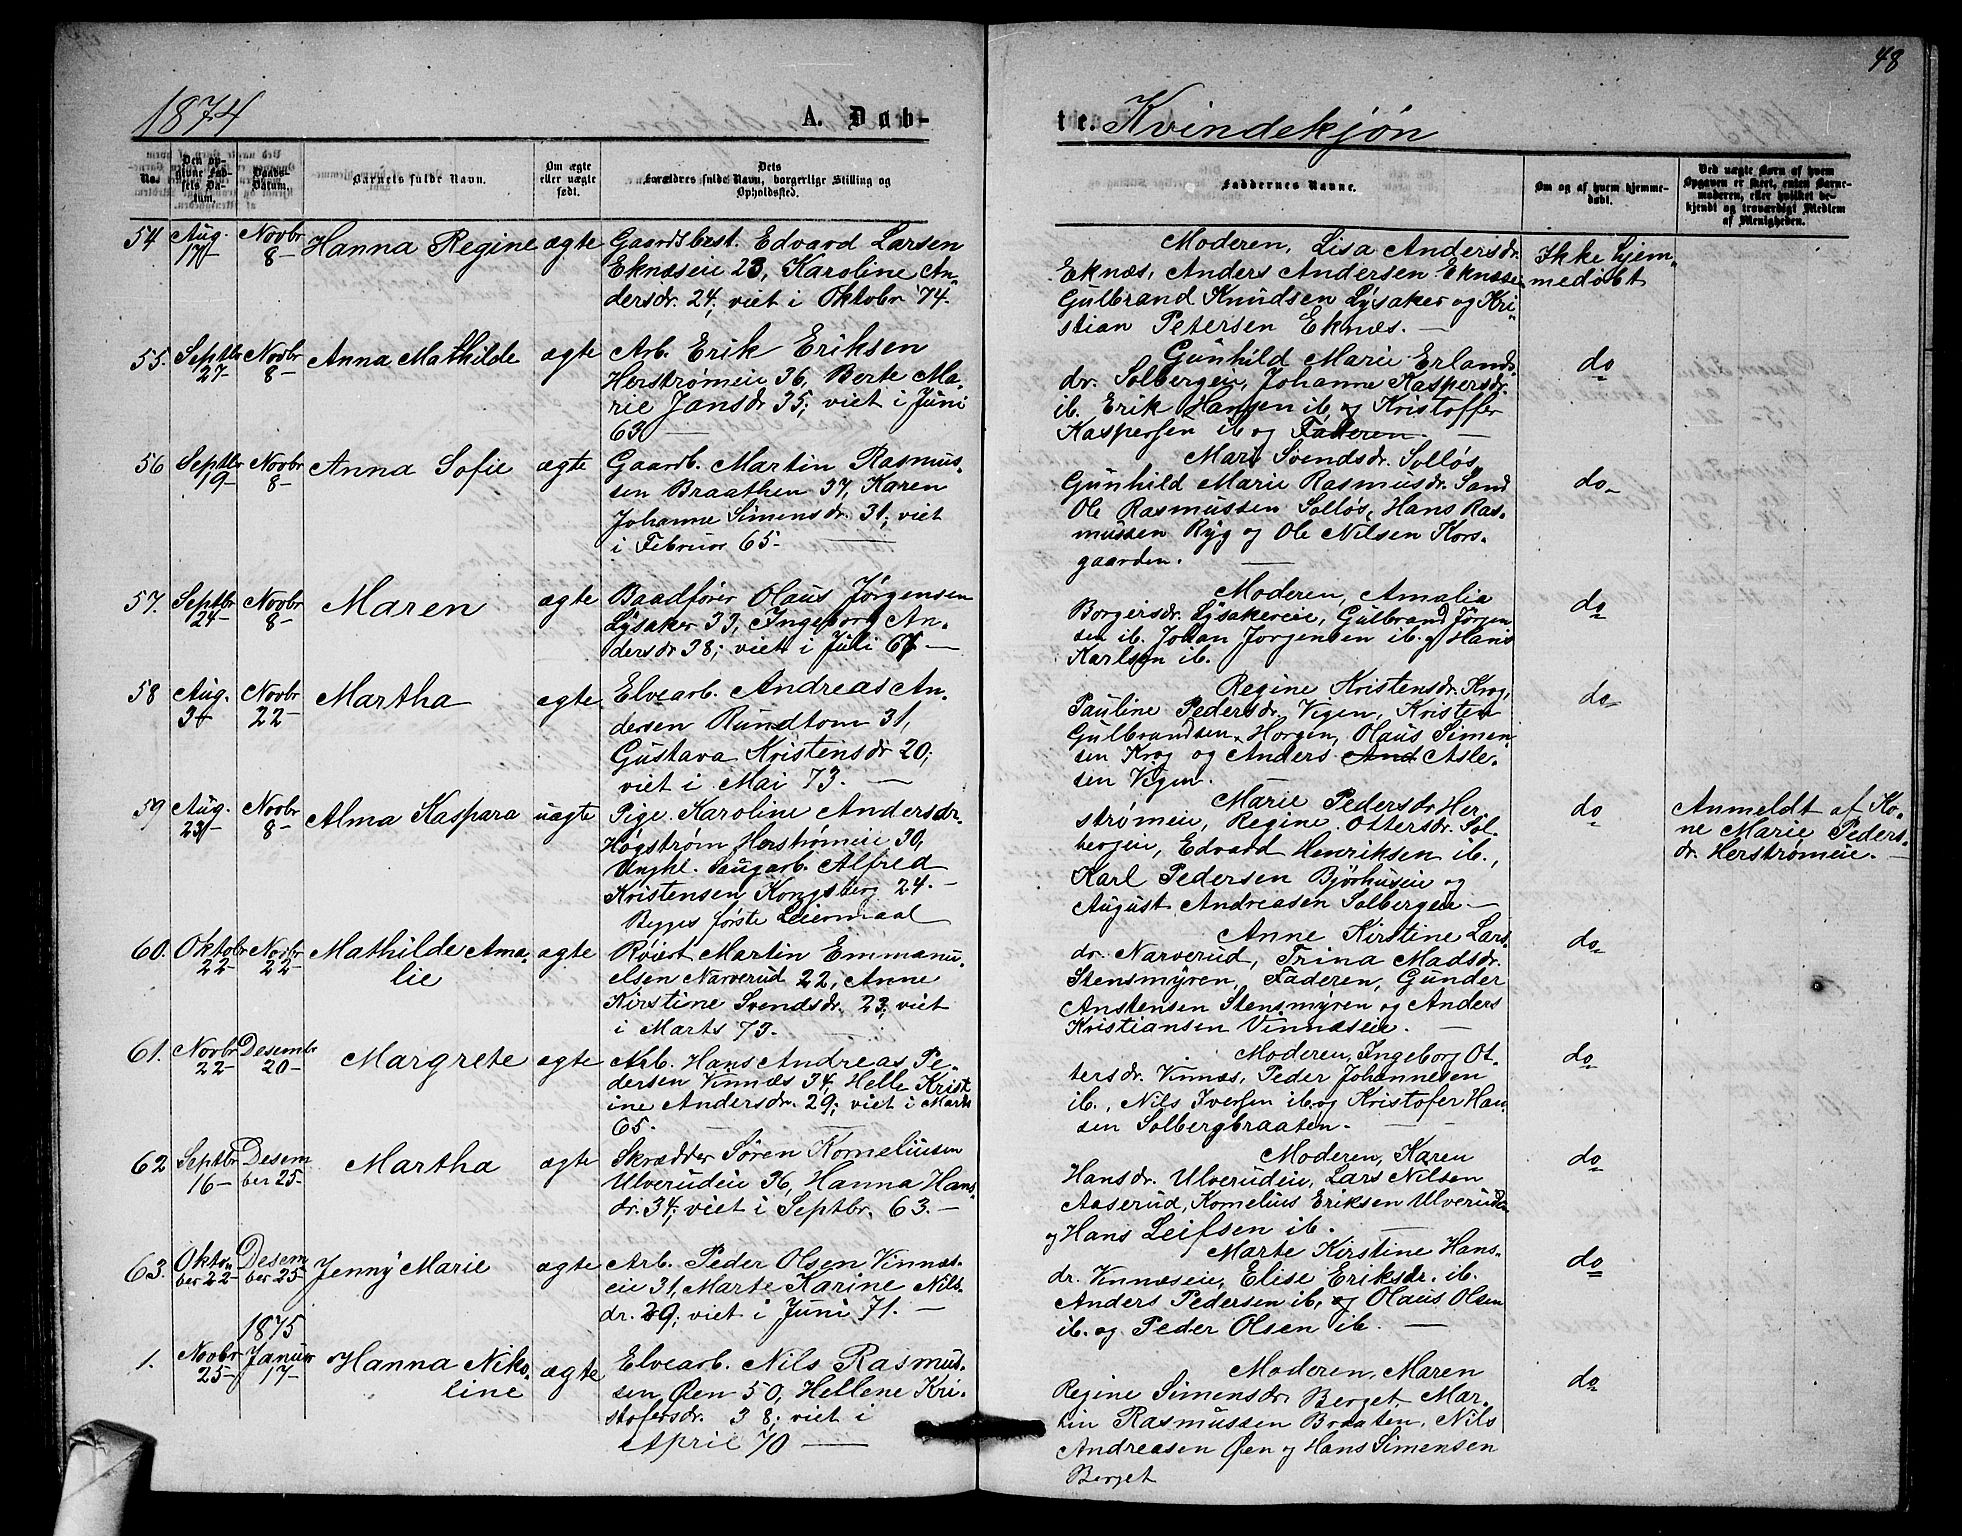 48
1874 A. Døb-
te. Kvindekjøn
No.
Den opgivne Fødsels Datum.
Daabs-Datum.
Barnets fulde Navn.
Om ægte eller uægte født.
Dets Forældres fulde Navn, borgerlige Stilling og Opholdssted.
Faddernes Navne.
Om og af hvem hjemmedøbt.
Ved uægte Børn af hvem Opgaven er skeet, enten Barnemoderen, eller hvilket bekjendt og troværdigt Medlem af Menigheden.
54 Aug. 17 Novbr 8 Hanna Regine ægte Gaardsbest. Edvard Larsen
Eknæseie 23, Karoline An-
dersdr. 24; viet i Oktobr 74.
Moderen, Lisa Andersdr.
Eknæs, Anders Andersen Eknæseie
Gulbrand Knudsen Lysaker og Kri-
stian Petersen Eknæs.
Ikke hjem-
medøbt
55. Septbr 27 Novbr 8 Anna Mathilde ægte Arb. Erik Eriksen
Herstrømeie 36, Berte Ma-
rie Jansdr 35; viet i Juni
63
Gunhild Marie Erlands-
dr. Solbergeie, Johanne Kaspersdr.
ib. Erik Hansen ib, og Kristoffer
Kaspersen ib og Faderen.
do
56 Septbr 9 Novbr 8 Anna Sofie ægte Gaardb. Martin Rasmus-
sen Braathen 37, Karen
Johanne Simensdr. 31; viet
i Februar 65.
Mari Svendsdr. Solløs,
Gunhild Marie Rasmusdr. Sand
Ole Rasmussen Solløs, Hans Ras-
mussen Ryg og Ole Nilsen Kors-
gaarden.
do
57. Septbr 24 Novbr 8 Maren ægte Baadfører Olaus Jørgensen
Lysaker 33, Ingeborg An-
dersdr 38; viet i Juli
Moderen, Amalia
Borgersdr. Lysakereie, Gulbrand Jørgen-
sen ib. Johan Jørgensen ib. og Hans
Karlsen ib.
do
58 Aug. Novbr 22 Martha ægte Elvearb. Andreas An-
dersen Rundtom 31,
Gustava Kristensdr 20;
viet i Mai 73.
Regine Kristensdr. Krog,
Pauline Pedersdr. Vigen, Kristen
Gulbrandsen Horgen, Olaus Simen-
sen Krog og Anders And Asle-
sen Vigen.
do
59 Aug. 23 Novbr 8 Alma Kaspara uægte Pige Karoline Andersdr.
Høgstrøm Herstrømeie 30,
Ungkl. Saugarb. Alfred
Kristensen Kongsberg 24.
Begges første Leiermaal
Marie Pedersdr Her-
strømeie, Regine Ottersdr. Sol-
bergeie, Edvard Henriksen ib.,
Karl Pedersen Bjørhuseie og
August Andreasen Solbergeie.
do
Anmeldt af Ko-
ne Marie Peders-
dr. Herstrømeie.
60. Oktobr 22 Novbr 22 Mathilde Ama-
lie ægte Røiert Martin Emmanu-
elsen Narverud 22, Anne
Kirstine Svendsdr. 23; viet
i Marts 73.
Anne Kirstine Lars-
dr. Narverud, Trina Madsdr.
Stensmyren, Faderen, Gunder
Anstensen Stensmyren og Anders
Kristiansen Vinnæseie.
do
61. Novbr 22 Desembr 20 Margrete ægte Arb. Hans Andreas Pe-
dersen Vinnæs 34, Helle Krist
ine Andersdr. 29; viet i Marts
65.
Moderen, Ingeborg Ot-
tersdr. Vinnæs, Peder Johannesen
ib., Nils Iversen ib. og Kristofer Han-
sen Solbergbraaten.
do
62 Septbr 16 Desem
ber 25 Martha ægte Skrædder Søren Korneliusen
Ulverudeie 36, Hanna Hans-
dr. 34; viet i Septbr. 63.
Moderen, Karen
Hansdr. Ulverudeie, Lars Nilsen
Aaserud, Kornelius Eriksen Ulverudeie
og Hans Leifsen ib.
do
63. Okto
ber 22 Desem
ber 25 Jenny Marie ægte Arb. Peder Olsen Vinnæs-
eie 31, Marte Karine Nils-
dr. 29; viet i Juni 71.
Marte Kirstine Hans-
dr. Vinnæseie, Elise Eriksdr. ib.
Anders Pedersen ib, og Olaus Olsen
ib. og Peder Olsen ib.
do
1875
1. Novbr 25 Januar 17 Hanna Niko-
line ægte Elvearb. Nils Rasmus-
sen Øen 50, Hellene Kri-
stofersdr. 38; viet i
April 70
Moderen, Maren
Regine Simensdr. Berget, Mar-
tin Rasmussen Braaten, Nils
Andreasen Øen og Hans Simensen
Berget
do